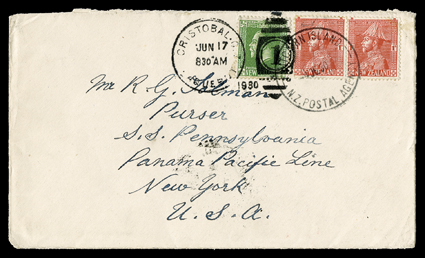 CRISTOBAL
JUN 17
830 AM
1930
RN ISLAND
N.Z. POSTAL AG
NEW ZEALAND
NEW ZEALAND
Mr. R. G. Solman
Purser
S.S. Pennsylvania
Panama Pacific Line
New York
U.S.A.